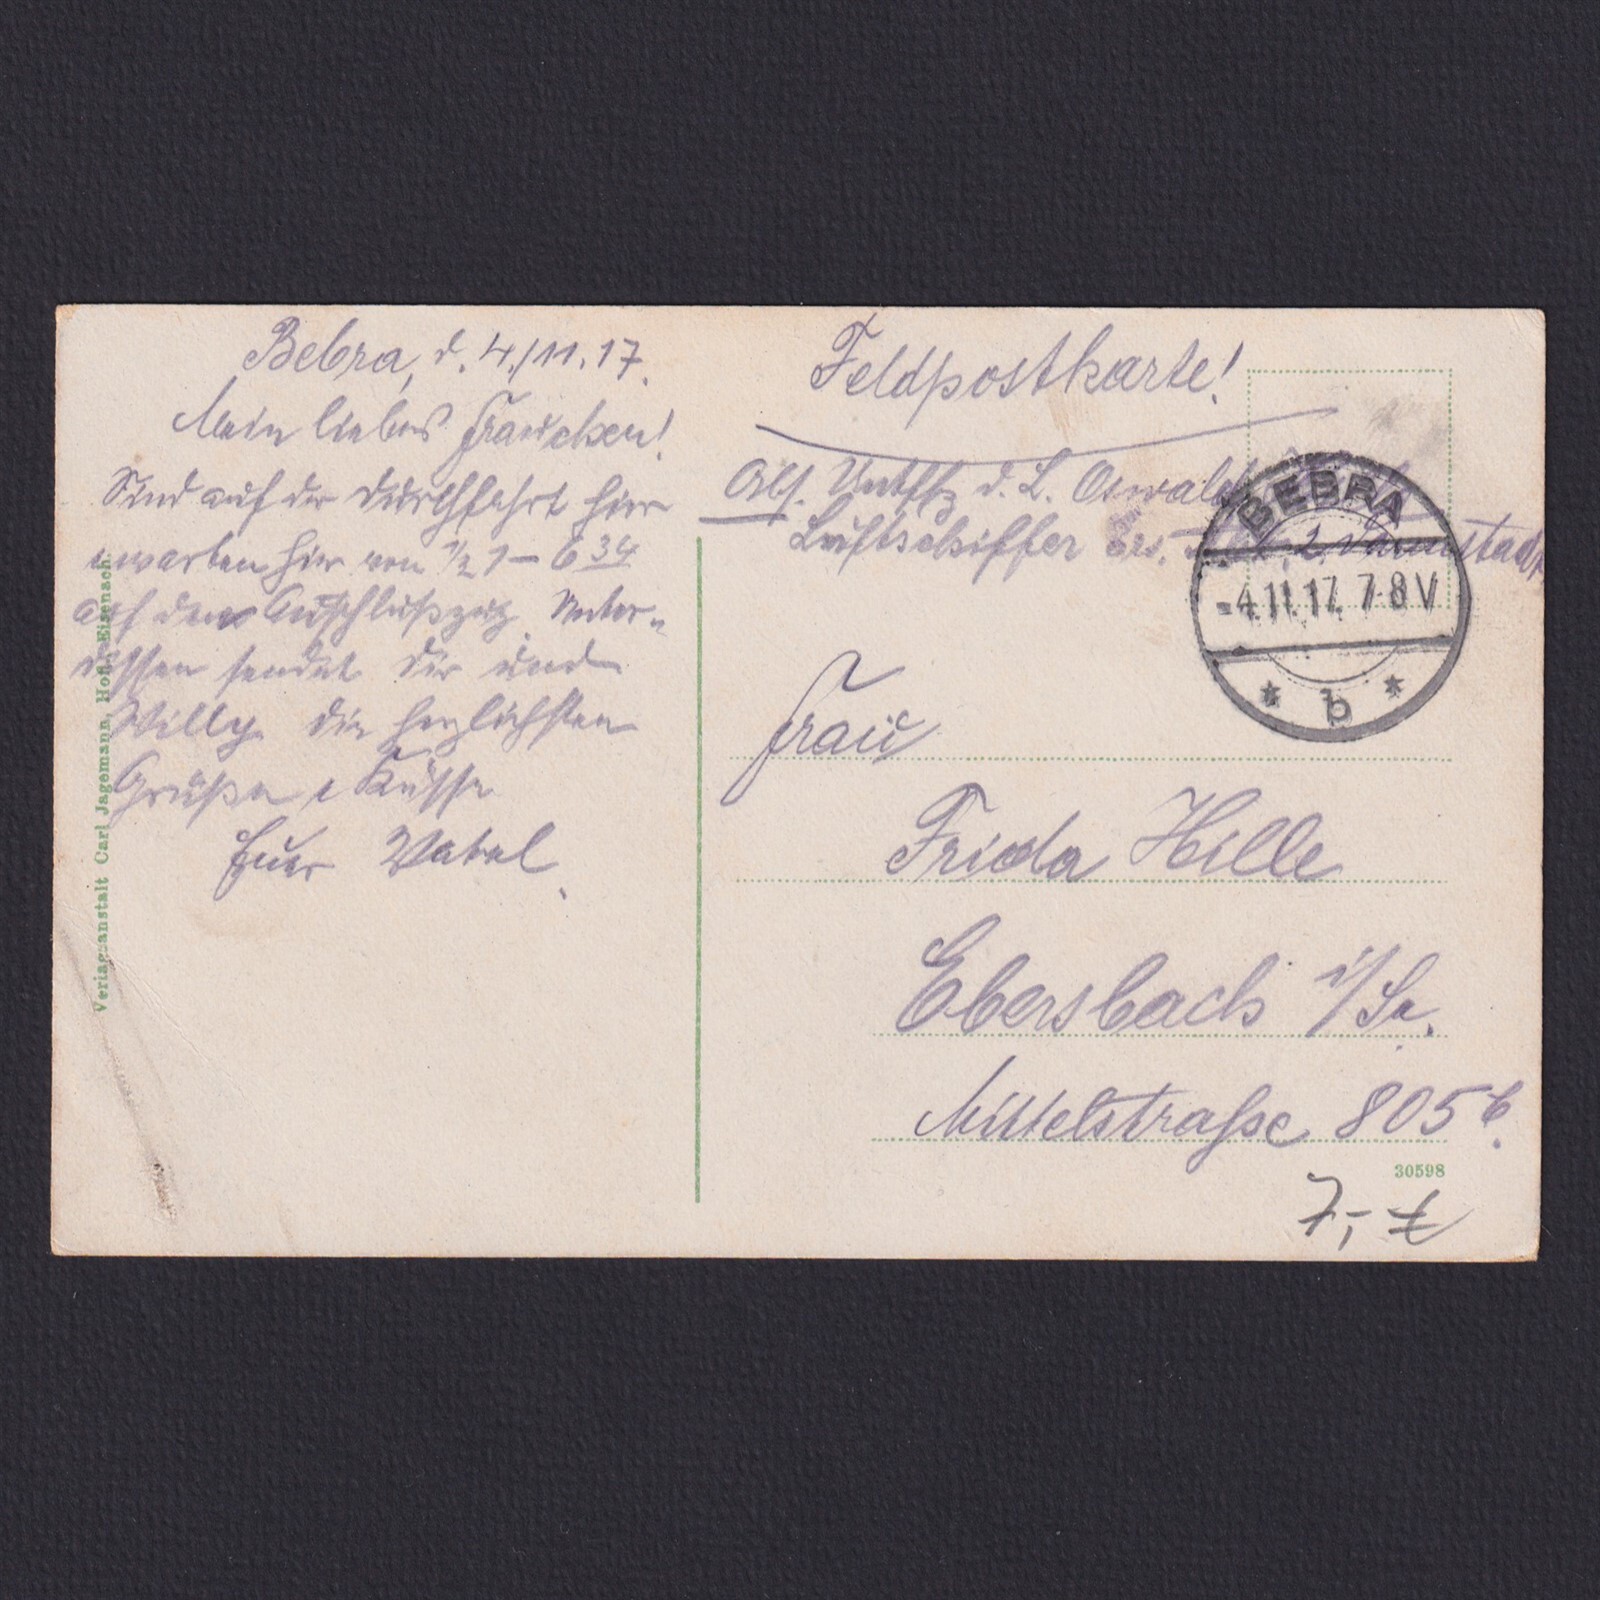 Bebra, d. 4./11.17.
Mein liebes Frauchen!
Sind auf der Durchfahrt hier
u warten hier von 1/2 1 – 6 34
auf den Anschlußzug. Unter-
dessen sendet Dir und
Willy die herzlichsten
Grüße u Küsse
Euer Vatel.
Verlagsanstalt Carl Jagemann, Hof-Eisenach.
Feldpostkarte!
Abs. Untffz d. L. Oswald
Luftschiffer Ers. 2 Darmstadt
BEBRA
-4.11.17. 7-8 V
* b *
Frau
Frieda Hille
Ebersbach i/Sa.
Mittelstraße 805 b.
30598
7,-